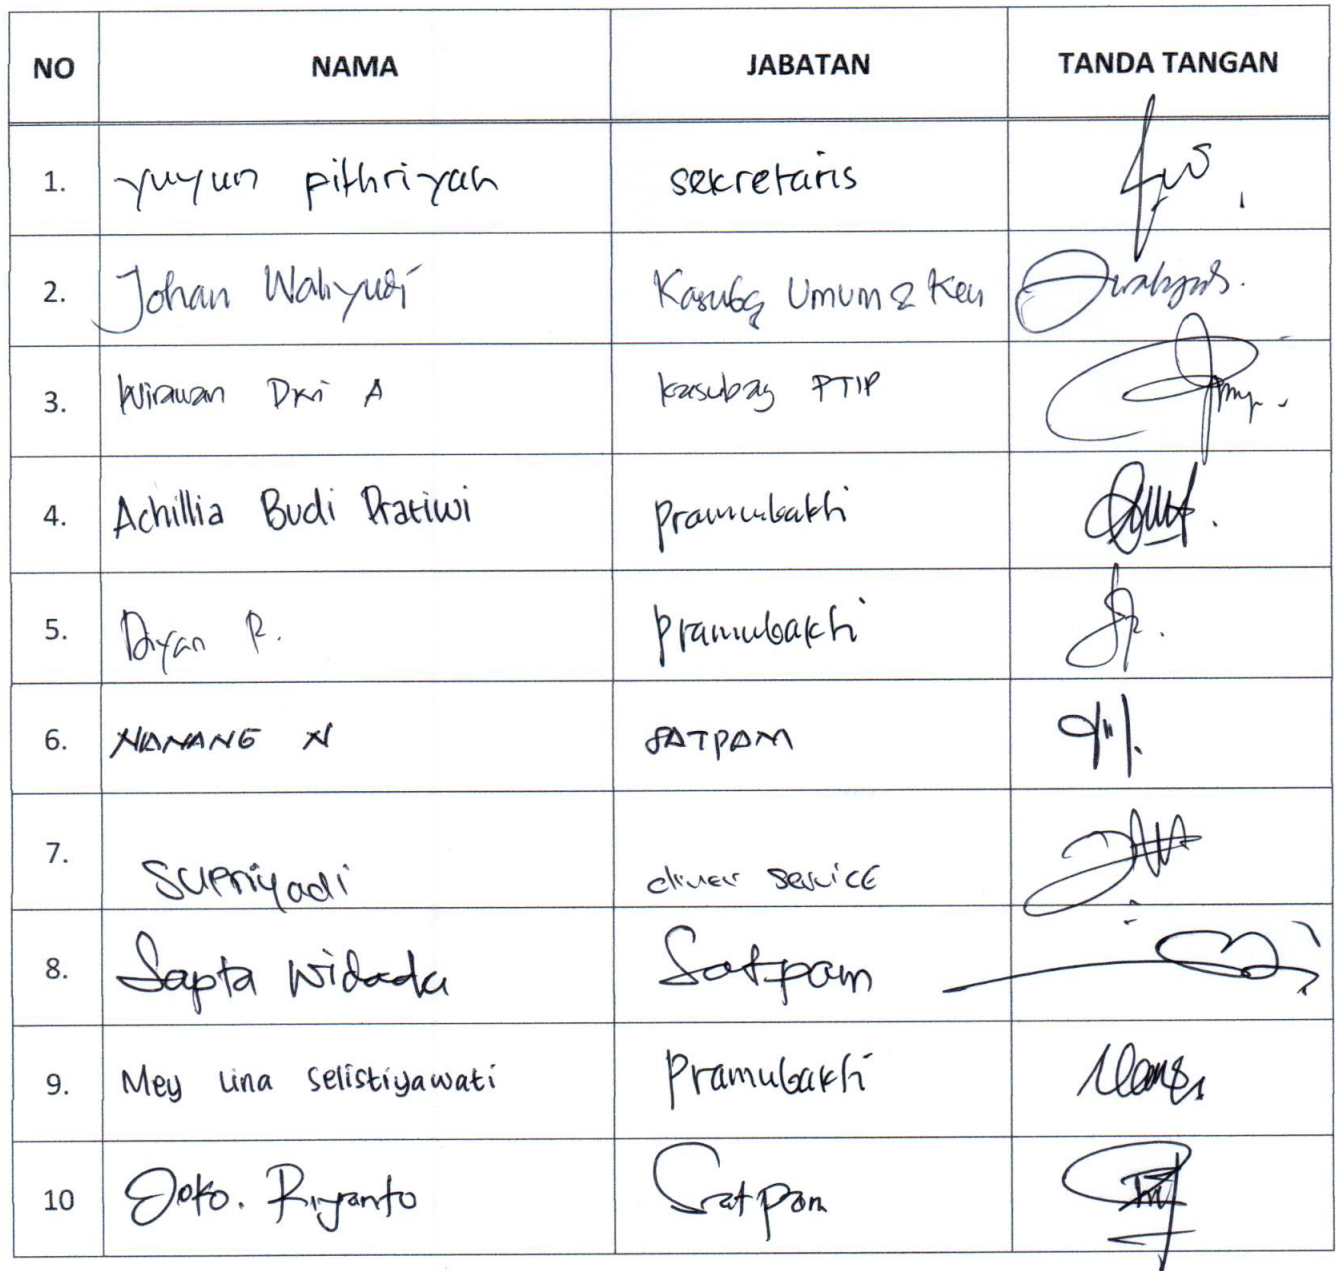 NO NAMA JABATAN TANDA TANGAN
1. yuyun pithriyah sekretaris
2. Johan Wahyudi Kasubg Umum & Keu
3. Wirawan Dwi A kasubag PTIP
4. Achillia Budi Pratiwi pramubakti
5. Diyan P. pramubakti
6. NANANG N SATPAM
7. Supriyadi driver service
8. Sapta Widada Satpam
9. Mey Lina Selistiyawati Pramubakti
10 Joko. Riyanto Satpam